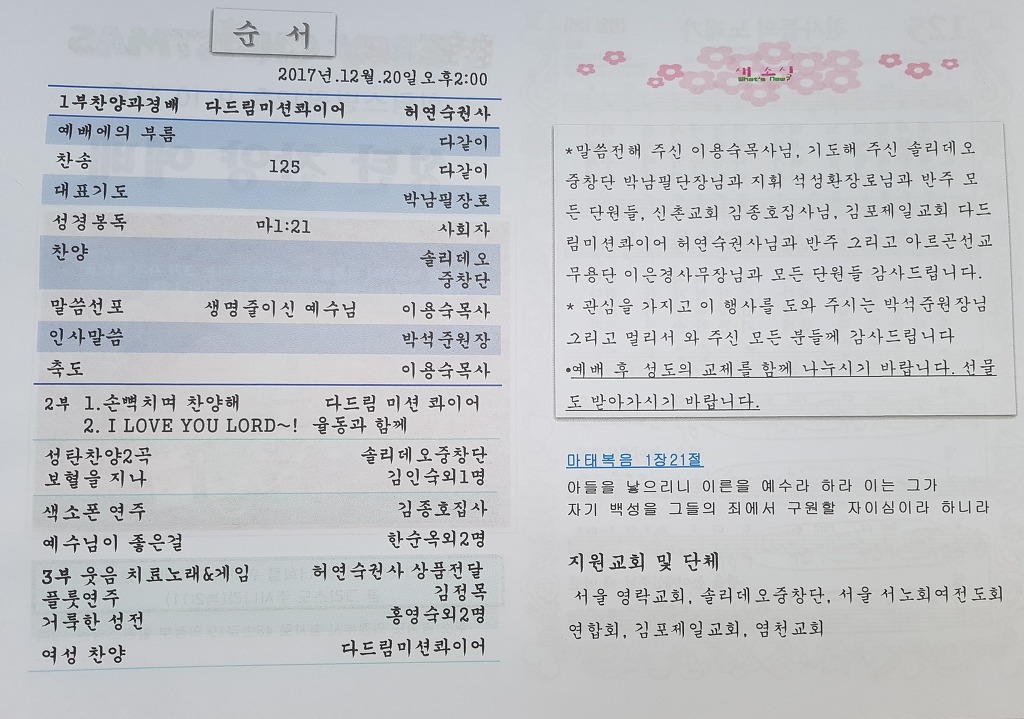 순 서
2017년.12월.20일오후2:00
1부찬양과경배 다드림미션콰이어 허연숙권사
예배에의 부름 다같이
찬송 125 다같이
대표기도 박남필장로
성경봉독 마1:21 사회자
찬양 솔리데오
중창단
말씀선포 생명줄이신 예수님 이용숙목사
인사말씀 박석준원장
축도 이용숙목사
2부 1.손뼉치며 찬양해 다드림 미션 콰이어
2. I LOVE YOU LORD~! 율동과 함께
성탄찬양2곡 솔리데오중창단
보혈을 지나 김인숙외1명
색소폰 연주 김종호집사
예수님이 좋은걸 한순옥외2명
3부 웃음 치료노래&게임 허연숙권사 상품전달
플룻연주 김정목
거룩한 성전 홍영숙외2명
여성 찬양 다드림미션콰이어
새 소식
What's New?
*말씀전해 주신 이용숙목사님, 기도해 주신 솔리데오
중창단 박남필단장님과 지휘 석성환장로님과 반주 모
든 단원들, 신촌교회 김종호집사님, 김포제일교회 다드
림미션콰이어 허연숙권사님과 반주 그리고 아르곤선교
무용단 이은경사무장님과 모든 단원들 감사드립니다.
* 관심을 가지고 이 행사를 도와 주시는 박석준원장님
그리고 멀리서 와 주신 모든 분들께 감사드립니다
•예배 후 성도의 교제를 함께 나누시기 바랍니다. 선물
도 받아가시기 바랍니다.
마태복음 1장21절
아들을 낳으리니 이른을 예수라 하라 이는 그가
자기 백성을 그들의 죄에서 구원할 자이심이라 하니라
지원교회 및 단체
서울 영락교회, 솔리데오중창단, 서울 서노회여전도회
연합회, 김포제일교회, 염천교회